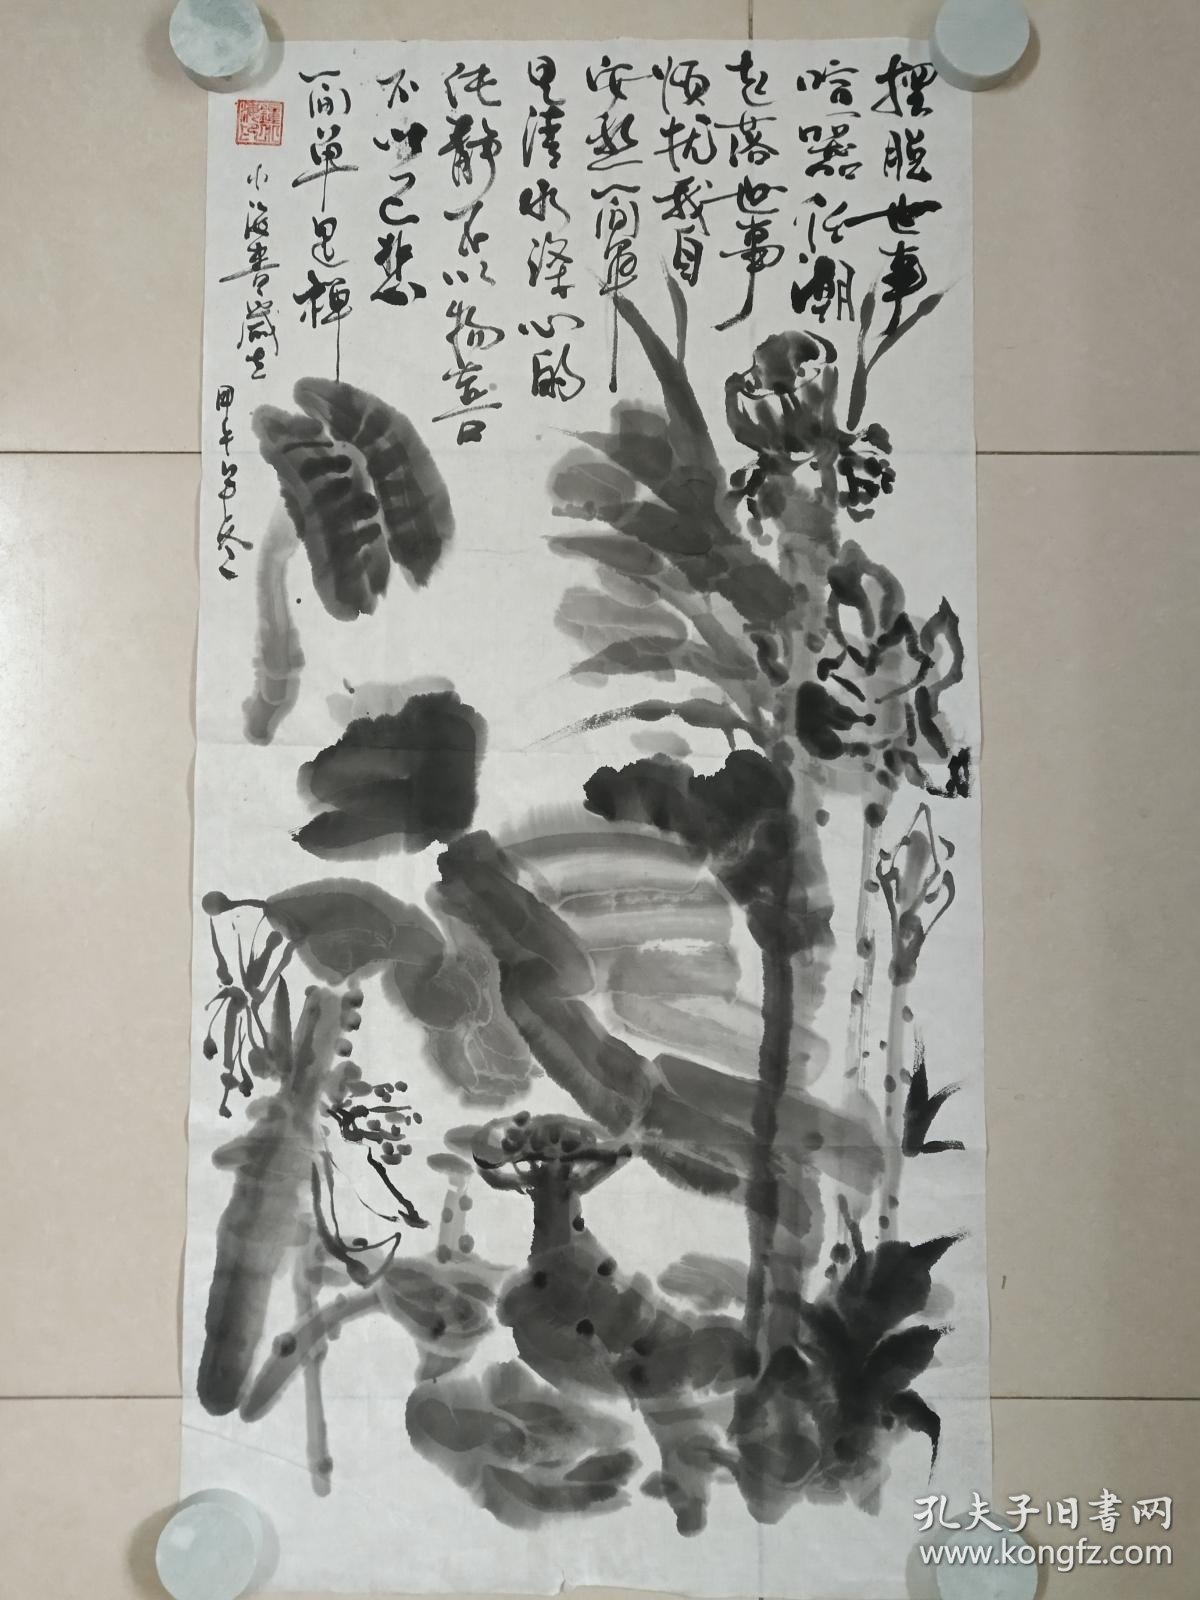 摆脱世事
喧嚣任潮
起落世事
烦扰我自
安然简单
是清水涤心的
纯静不以物喜
不以己悲
简单是禅
甲午
孔夫子旧书网
www.kongfz.com